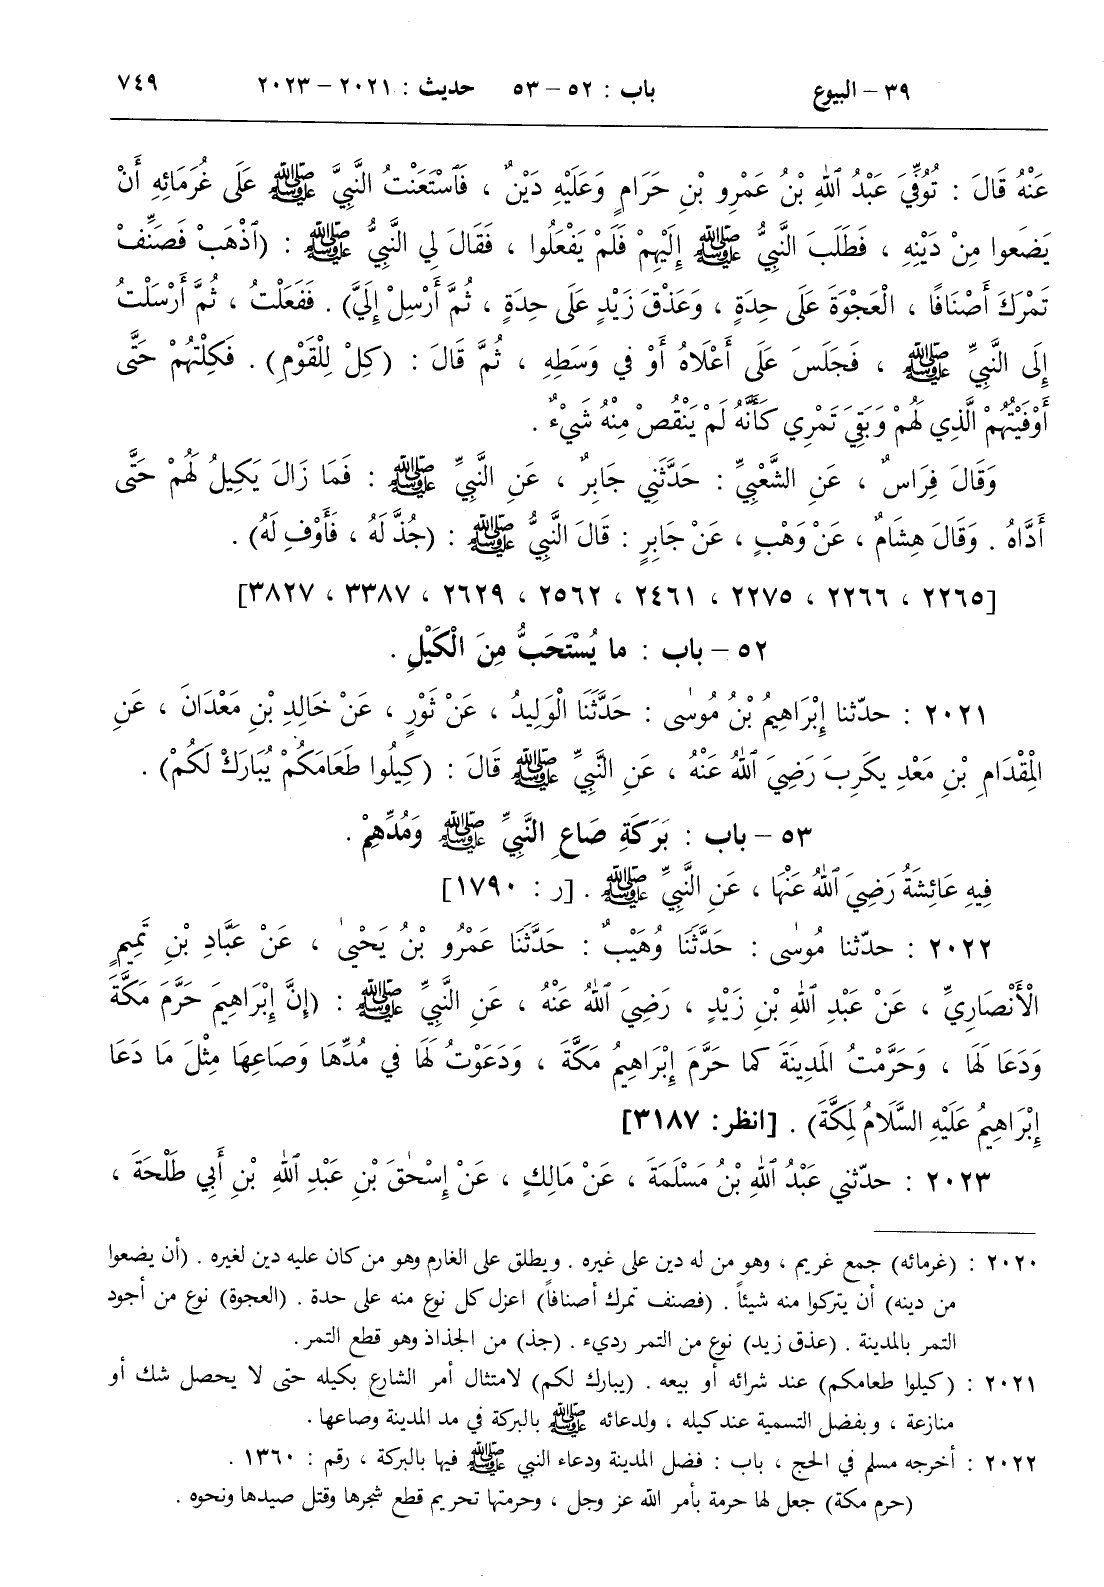 ٣٩ – البيوع باب : ٥٢ – ٥٣ حديث : ٢٠٢١ – ٢٠٢٣ ٧٤٩
عَنْهُ قَالَ : تُوُفِّيَ عَبْدُ ٱللهِ بْنُ عَمْرِو بْنِ حَرَامٍ وَعَلَيْهِ دَيْنٌ ، فَٱسْتَعَنْتُ النَّبِيَّ ﷺ عَلَى غُرَمَائِهِ أَنْ
يَضَعوا مِنْ دَيْنِهِ ، فَطَلَبَ النَّبِيُّ ﷺ إِلَيْهِمْ فَلَمْ يَفْعَلُوا ، فَقَالَ لِي النَّبِيُّ ﷺ : (ٱذْهَبْ فَصَنِّفْ
تَمْرَكَ أَصْنَافًا ، الْعَجْوَةَ عَلَى حِدَةٍ ، وَعَذْقَ زَيْدٍ عَلَى حِدَةٍ ، ثُمَّ أَرْسِلْ إِلَيَّ) . فَفَعَلْتُ ، ثُمَّ أَرْسَلْتُ
إِلَى النَّبِيِّ ﷺ ، فَجَلَسَ عَلَى أَعْلَاهُ أَوْ في وَسَطِهِ ، ثُمَّ قَالَ : (كِلْ لِلْقَوْمِ) . فَكِلْتُهُمْ حَتَّى
أَوْفَيْتُهُمْ الَّذِي لَهُمْ وَبَقِيَ تَمْرِي كَأَنَّهُ لَمْ يَنْقُصْ مِنْهُ شَيْءٌ .
وَقَالَ فِرَاسٌ ، عَنِ الشَّعْبِيِّ : حَدَّثَنِي جَابِرٌ ، عَنِ النَّبِيِّ ﷺ : فَمَا زَالَ يَكِيلُ لَهُمْ حَتَّى
أَدَّاهُ . وَقَالَ هِشَامٌ ، عَنْ وَهْبٍ ، عَنْ جَابِرٍ : قَالَ النَّبِيُّ ﷺ : (جُذَّ لَهُ ، فَأَوْفِ لَهُ) .
[٢٢٦٥ ، ٢٢٦٦ ، ٢٢٧٥ ، ٢٤٦١ ، ٢٥٦٢ ، ٢٦٢٩ ، ٣٣٨٧ ، ٣٨٢٧]
٥٢ – باب : ما يُسْتَحَبُّ مِنَ الْكَيْلِ .
٢٠٢١ : حدّثنا إِبْرَاهِيمُ بْنُ مُوسٰى : حَدَّثَنَا الْوَلِيدُ ، عَنْ ثَوْرٍ ، عَنْ خَالِدِ بْنِ مَعْدَانَ ، عَنِ
الْمِقْدَامِ بْنِ مَعْدِ يكَرِبَ رَضِيَ ٱللهُ عَنْهُ ، عَنِ النَّبِيِّ ﷺ قَالَ : (كِيلُوا طَعَامَكُمْ يُبَارَكْ لَكُمْ) .
٥٣ – باب : بَرَكَةِ صَاعِ النَّبِيِّ ﷺ وَمُدِّهِمْ .
فِيهِ عَائِشَةُ رَضِيَ ٱللهُ عَنْهَا ، عَنِ النَّبِيِّ ﷺ . [ر : ١٧٩٠]
٢٠٢٢ : حدّثنا مُوسٰى : حَدَّثَنَا وُهَيْبٌ : حَدَّثَنَا عَمْرُو بْنُ يَحْيىٰ ، عَنْ عَبَّادِ بْنِ تَمِيمٍ
الْأَنْصَارِيِّ ، عَنْ عَبْدِ ٱللهِ بْنِ زَيْدٍ ، رَضِيَ ٱللهُ عَنْهُ ، عَنِ النَّبِيِّ ﷺ : (إِنَّ إِبْرَاهِيمَ حَرَّمَ مَكَّةَ
وَدَعَا لَهَا ، وَحَرَّمْتُ المَدِينَةَ كما حَرَّمَ إِبْرَاهِيمُ مَكَّةَ ، وَدَعَوْتُ لَهَا في مُدِّهَا وَصَاعِهَا مِثْلَ مَا دَعَا
إِبْرَاهِيمُ عَلَيْهِ السَّلَامُ لِمَكَّةَ) . [انظر: ٣١٨٧]
٢٠٢٣ : حدّثني عَبْدُ ٱللهِ بْنُ مَسْلَمَةَ ، عَنْ مَالِكٍ ، عَنْ إِسْحٰقَ بْنِ عَبْدِ ٱللهِ بْنِ أَبِي طَلْحَةَ ،
٢٠٢٠ : (غرمائه) جمع غريم ، وهو من له دين على غيره . ويطلق على الغارم وهو من كان عليه دين لغيره . (أن يضعوا
من دينه) أن يتركوا منه شيئاً . (فصنف تمرك أصنافاً) اعزل كل نوع منه على حدة . (العجوة) نوع من أجود
التمر بالمدينة . (عذق زيد) نوع من التمر رديء . (جذ) من الجذاذ وهو قطع التمر.
٢٠٢١ : (كيلوا طعامكم) عند شرائه أو بيعه . (يبارك لكم) لامتثال أمر الشارع بكيله حتى لا يحصل شك أو
منازعة ، وبفضل التسمية عند كيله ، ولدعائه ﷺ بالبركة في مد المدينة وصاعها .
٢٠٢٢ : أخرجه مسلم في الحج ، باب : فضل المدينة ودعاء النبي ﷺ فيها بالبركة ، رقم : ١٣٦٠ .
(حرم مكة) جعل لها حرمة بأمر الله عز وجل ، وحرمتها تحريم قطع شجرها وقتل صيدها ونحوه .